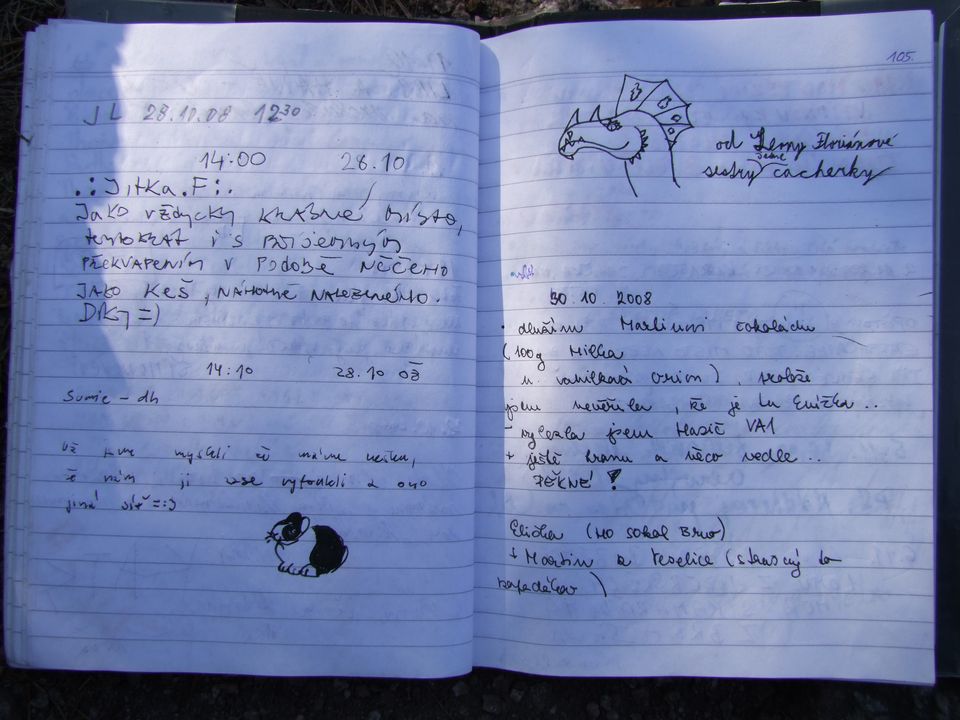 JL 28.10.08 12³⁰
14:00 28.10
.:Jitka.F:.
Jako vždycky krásné místo,
tentokrát i s příjemným
překvapením v podobě něčeho
jako keš, náhodně nalezeného.
Díky =)
14:10 28.10 08
Sumie - dh
už jsme mysleli že máme
že nám ji zase vyfoukli a ono
jiná síť =:)
105.
od Lemy Floriánové
sestry jedné čacherky
30.10.2008
dlužím Martinovi čokoládu
(100g Milka
n. vanilková orion), protože
jsem nevěřila, že je tu knížka..
- vylezla jsem Hasič VA1
+ ještě hranu a něco vedle..
PĚKNÉ!
Elička (HO sokol Brno)
+ Martin z Veselice (strašný to
zapadákov)